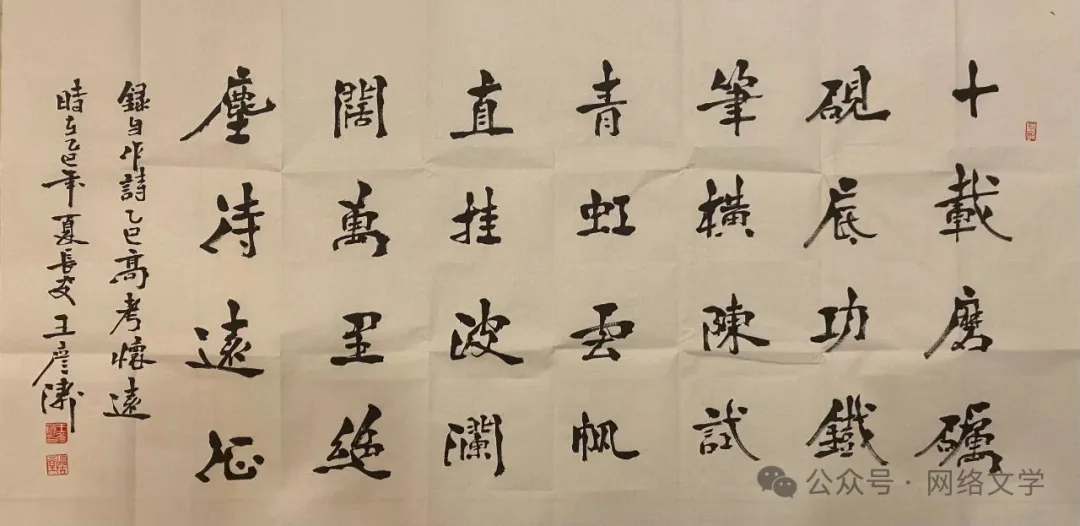 十載磨礪
硯底功鐵
筆橫陳試
青虹雲帆
直挂波瀾
闊萬里絕
塵待遠征
錄自作詩乙巳高考懷遠
時在乙巳年夏長安王彥
公众号 · 网络文学